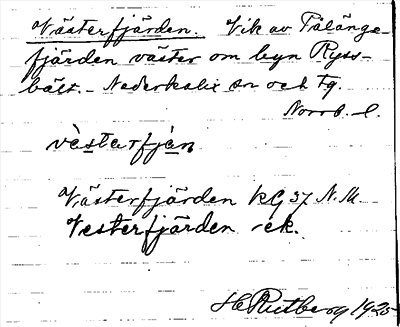 Västerfjärden. Vik av Tålänge-
fjärden väster om byn Ryss-
bält. - Nederkalix sn och tg.
Norrb. l.
vèstarfjàn
Västerfjärden kG 37 N.M.
Vesterfjärden -ek.
H Rutberg 1925